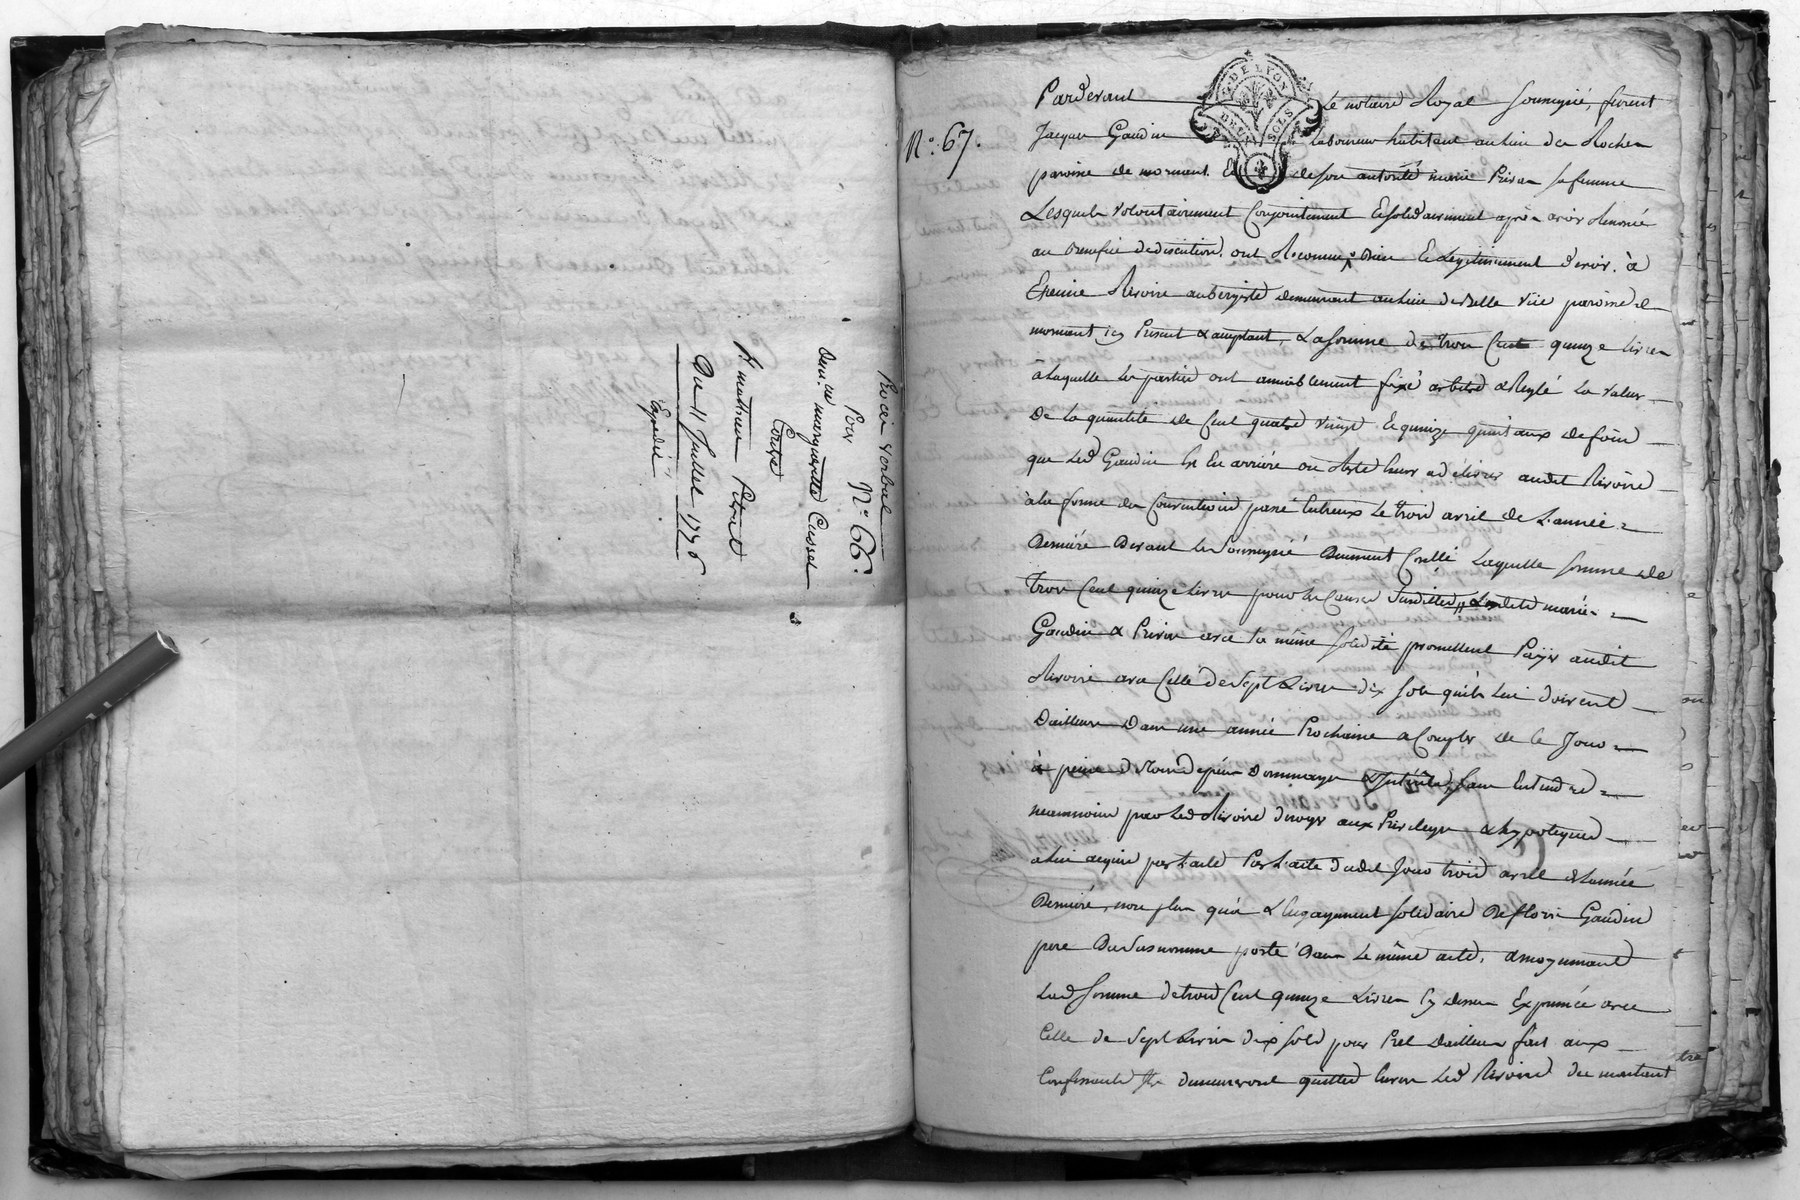 Procès verbal
N° 66.
Pour
dem.lle marguerite Cusset
Contre
S.r mathieu Petrat
Du 11 Juillet 1776
Expédié
N°. 67.
G. DE LYON
DEUX SOLS
Pardevant Le notaire Royal soussigné, furent
Jacque Gaudin Laboureur habitant au lieu des Roches
paroisse de mornant. Et de son autorité marie Privas sa femme
Lesquels volontairement Conjointement Et solidairement après avoir Renoncé
au Benefice de discution. ont Reconnu Bien Et legitimement devoir. à
Etienne Rivoire aubergiste demeurant au lieu de Belle vüe paroisse de
mornant icy Present & acceptant, La somme de trois Cent quinze livres
à laquelle les parties ont amiablement fixé arbitré & Reglé la valeur
De la quantité de Cent quatre vingt Et quinze quintaux de foin
que led Gaudin En arriere ou Reste leurs a délivrer audit Rivoire
à la forme des Conventions passé Entreux Le trois avril de L'année
Derniére Devant le Soussigné Duement Con.llé Laquelle somme de
trois Cent quinze Livres pour les Causes Susdittes, lesdits mariés
Gaudin & Privas avec la même solidité promettent Païer audit
Rivoire avec Celle de Sept Livres dix sols qu'ils Lui doivent
Dailleurs Dans une année Prochaine a Compter de Ce Jour
à peine de tous depens Dommages & Intérêts, sans Entendre
neanmoins par Led Rivoire deroger aux Privileges & hypoteques
a Lui acquis par L'acte Par L'acte dudit Jour trois avril de L'année
Derniére, non plus qu'a L'Engagement solidaire De fleuri Gaudin
pere Du susnommé porté dans Le même acte, & moyennant
Lad somme de trois Cent quinze Livres Cy dessus Exprimée avec
Celle de Sept Livres dix sols pour Prêt Dailleurs fait aux
Confessants Ils demeureront quittes Envers Led Rivoire du montant